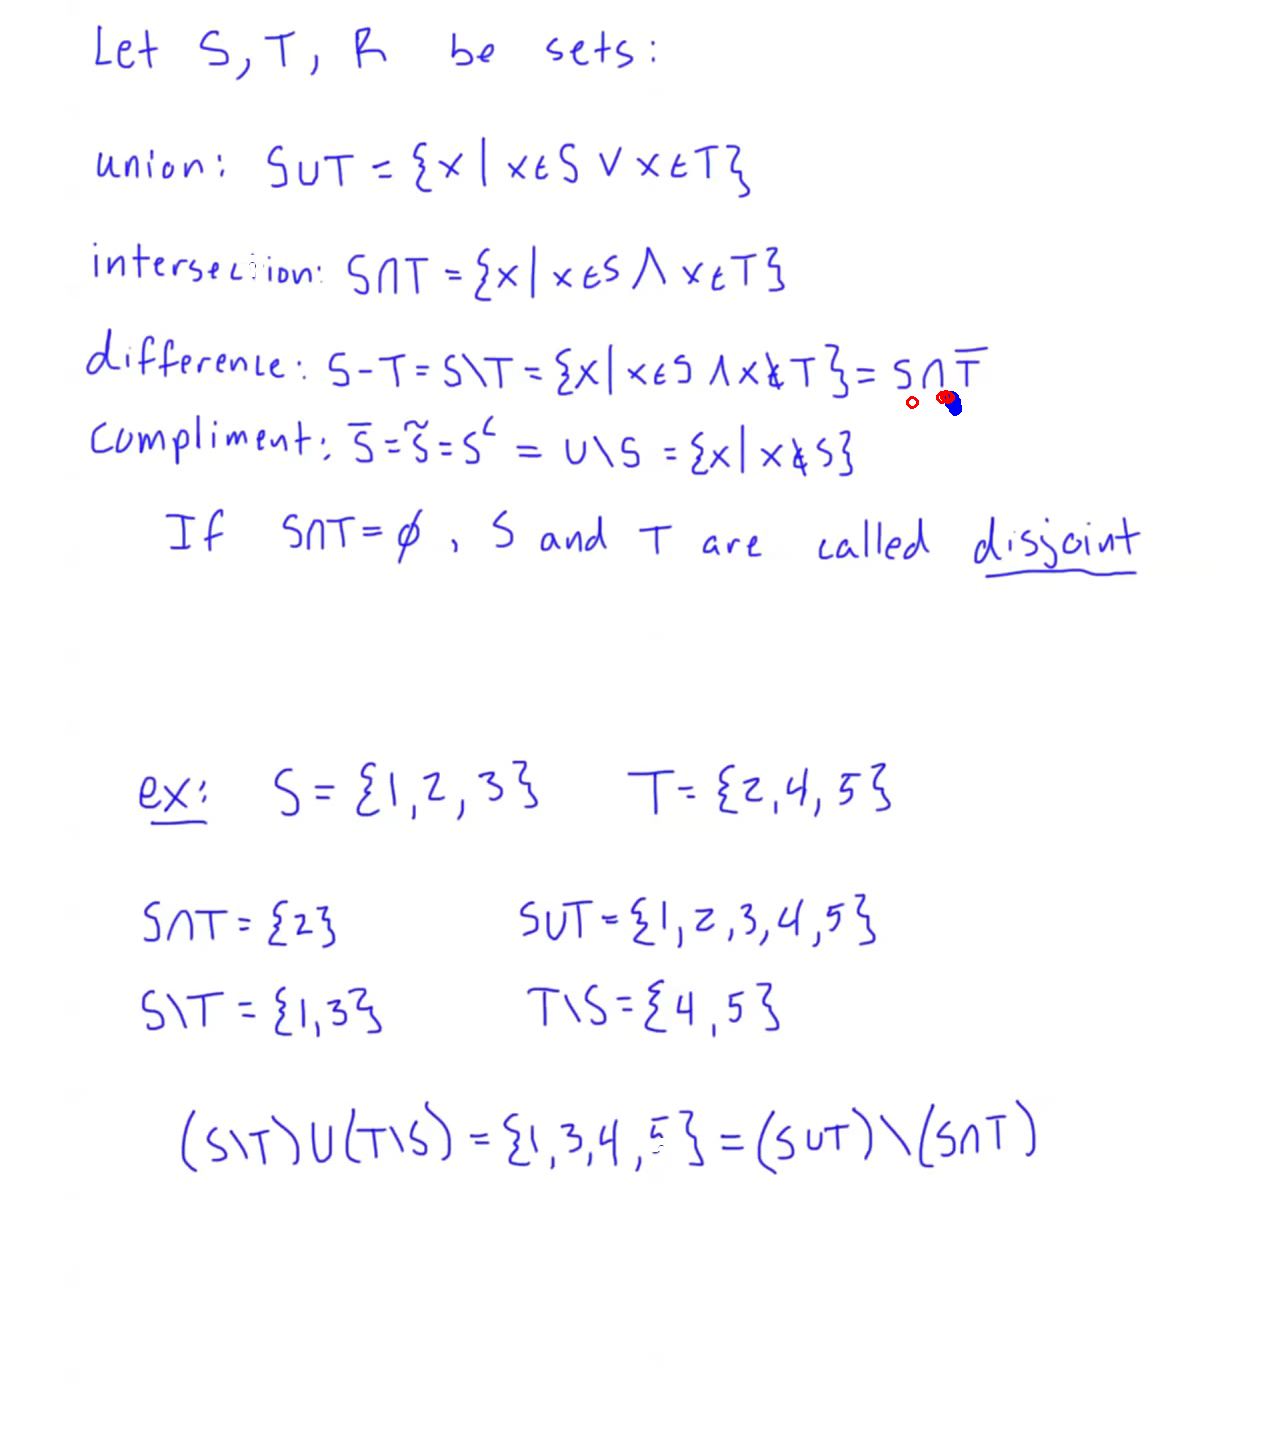 Let S, T, R be sets:
union: S∪T = {x | x∈S ∨ x∈T}
intersection: S∩T = {x | x∈S ∧ x∈T}
difference: S-T = S\T = {x | x∈S ∧ x∉T} = S∩T̅
Compliment: S̅ = S̃ = Sᶜ = U\S = {x | x∉S}
If S∩T = ∅, S and T are called disjoint
ex: S = {1, 2, 3} T = {2, 4, 5}
S∩T = {2} S∪T = {1, 2, 3, 4, 5}
S\T = {1, 3} T\S = {4, 5}
(S\T)∪(T\S) = {1, 3, 4, 5} = (S∪T)\(S∩T)